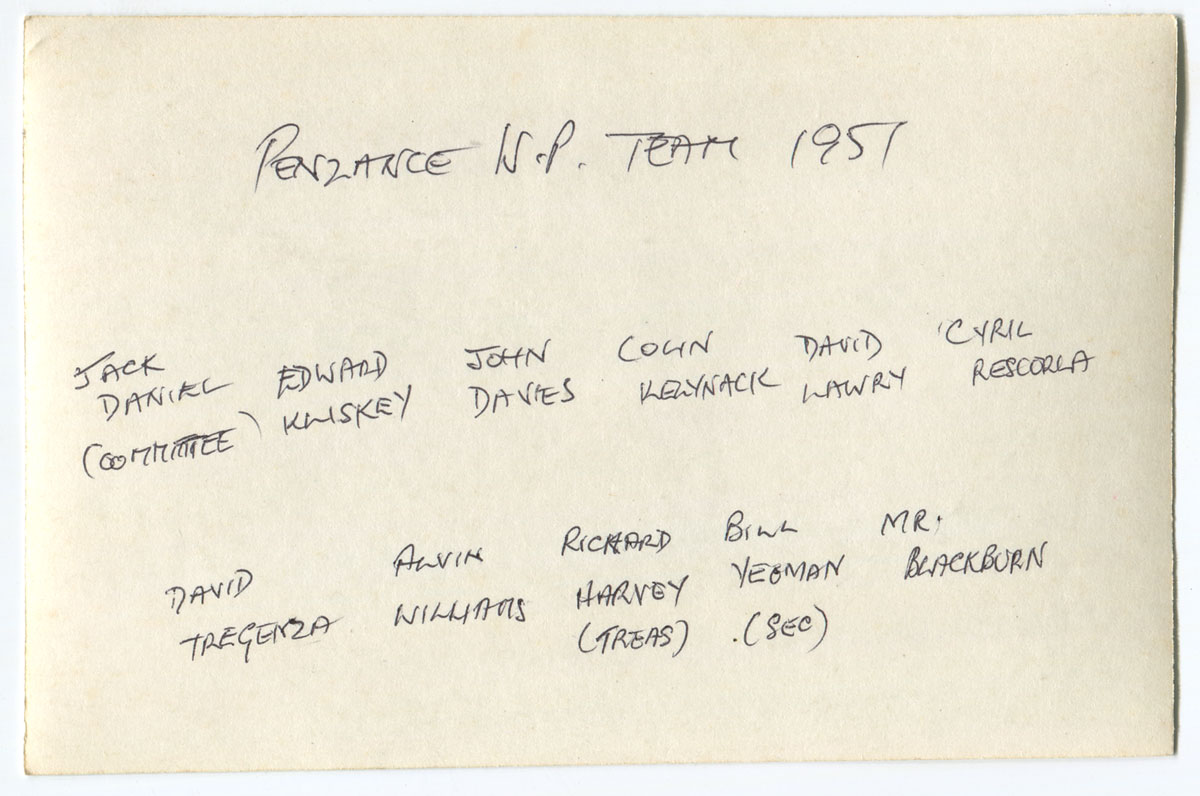 PENZANCE W.P. TEAM 1951
JACK EDWARD JOHN COLIN DAVID CYRIL
DANIEL KLISKEY DAVIES KELYNACK LAWRY RESCORLA
(COMMITTEE)
DAVID ALVIN RICHARD BILL MR.
TREGENZA WILLIAMS HARVEY YEOMAN BLACKBURN
(TREAS) (SEC)